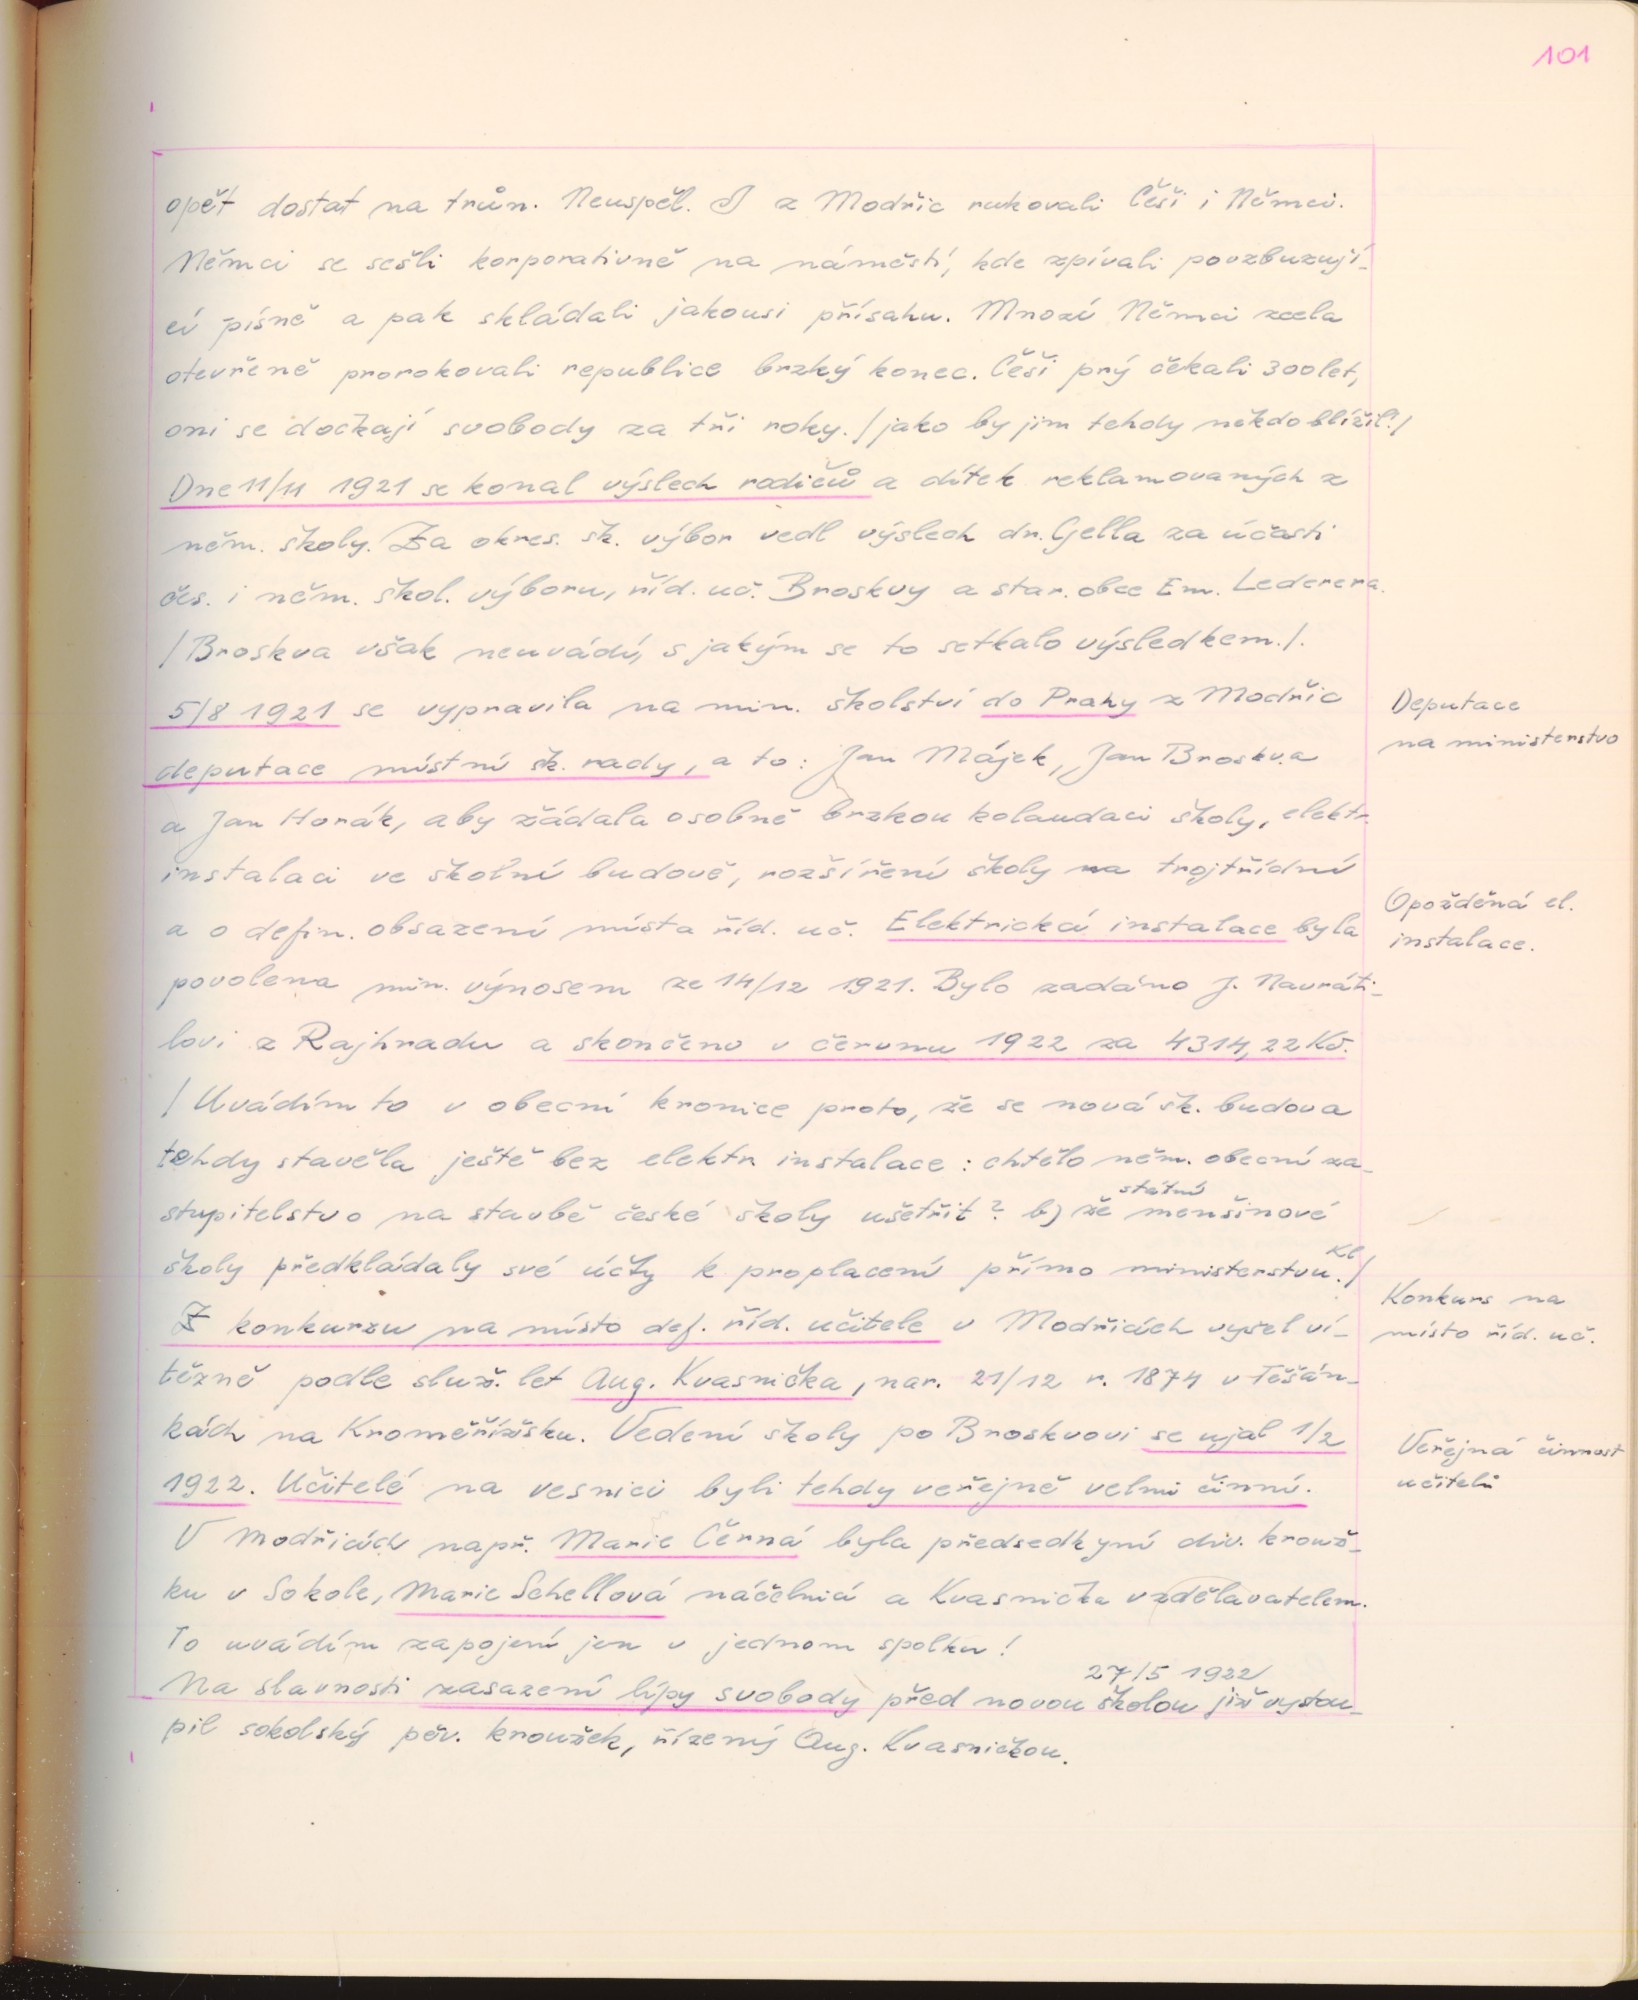 101
opět dostat na trůn. Neuspěl. I z Modřic rukovali Češi i Němci.
Němci se sešli korporativně na náměstí, kde zpívali povzbuzují-
cí písně a pak skládali jakousi přísahu. Mnozí Němci zcela
otevřeně prorokovali republice brzký konec. Češi prý čekali 300 let,
oni se dočkají svobody za tři roky. /jako by jim tehdy někdo blížil!/
Dne 11/11 1921 se konal výslech rodičů a dítek reklamovaných z
něm. školy. Za okres. šk. výbor vedl výslech dr. Gella za účasti
čes. i něm. škol. výboru, říd. uč. Broskvy a star. obce Em. Lederera.
/Broskva však neuvádí, s jakým se to setkalo výsledkem./.
5/8 1921 se vypravila na min. školství do Prahy z Modřic
Deputace
na ministerstvo
deputace místní šk. rady, a to: Jan Májek, Jan Broskva
a Jan Horák, aby žádala osobně brzkou kolaudaci školy, elektr.
instalaci ve školní budově, rozšíření školy na trojtřídní
a o defin. obsazení místa říd. uč. Elektrická instalace byla
Opožděná el.
instalace.
povolena min. výnosem ze 14/12 1921. Bylo zadáno J. Navráti-
lovi z Rajhradu a skončeno v červnu 1922 za 4314,22 Kč.
/Uvádím to v obecní kronice proto, že se nová šk. budova
tehdy stavěla ještě bez elektr instalace: chtělo něm. obecní za-
stupitelstvo na stavbě české školy ušetřit? b) že státní menšinové
školy předkládaly své účty k proplacení přímo ministerstvu. Kl/
Z konkurzu na místo def. říd. učitele v Modřicích vyšel ví-
Konkurs na
místo říd. uč.
tězně podle služ. let Aug. Kvasnička, nar. 21/12 r. 1874 v Těšán-
kách na Kroměřížsku. Vedení školy po Broskvovi se ujal 1/2
1922. Učitelé na vesnici byli tehdy veřejně velmi činní.
Veřejná činnost
učitelů
V Modřicích např. Marie Černá byla předsedkyní div. krouž-
ku v Sokole, Marie Schellová náčelnicí a Kvasnička vzdělavatelem.
To uvádím zapojení jen v jednom spolku!
Na slavnosti zasazení lípy svobody před novou školou 27/5 1922 již vystou-
pil sokolský pěv. kroužek, řízený Aug. Kvasničkou.